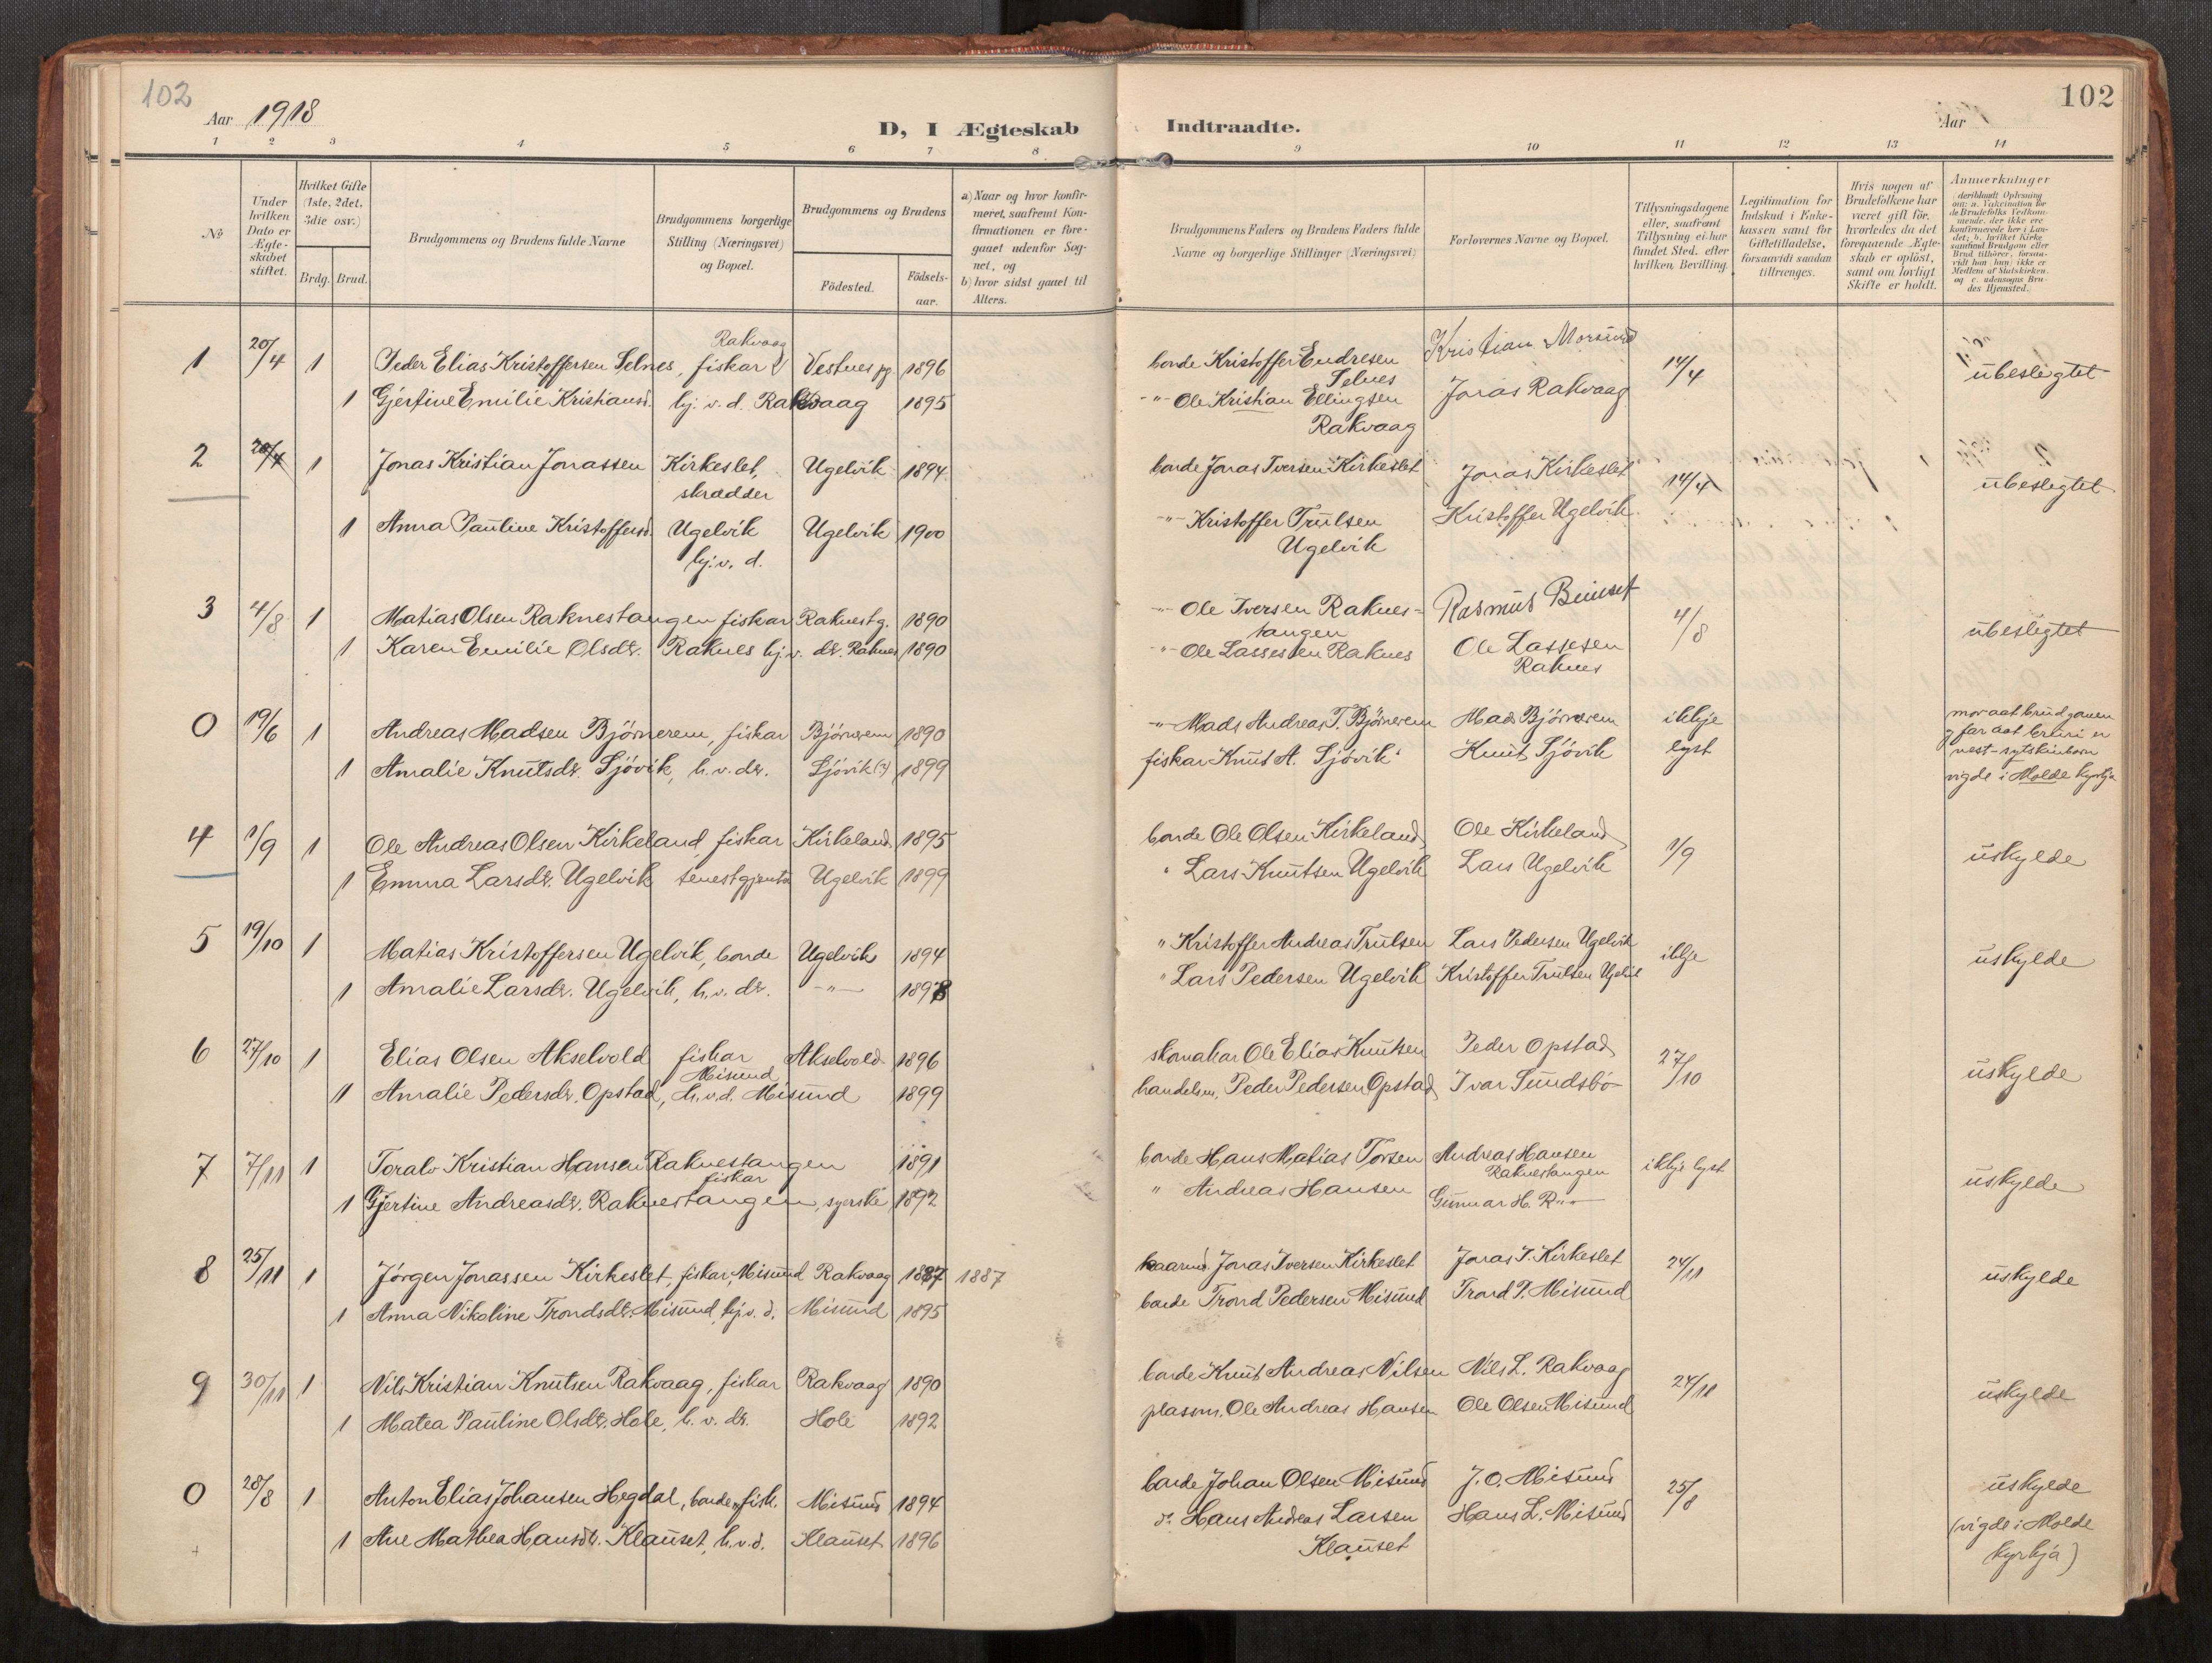 102
Aar 1918
D, I Ægteskab
1 2 3 4 5 6 7 8
No
Under hvilken Dato er Ægte-skabet stiftet.
Hvilket Gifte (1ste, 2det, 3die osv.)
Brdg. Brud.
Brudgommens og Brudens fulde Navne
Brudgommens borgerlige Stilling (Næringsvei) og Bopæl.
Brudgommens og Brudens
Födested.
Födsels-aar.
a) Naar og hvor konfir-meret, saafremt Kon-firmationen er fore-gaaet udenfor Sog-net, og
b) hvor sidst gaaet til Alters.
1 20/4 1 Peder Elias Kristoffersen Selnes, fiskar Rakvaag Vestnes pg. 1896
1 Gjertine Emilie Kristiansd. hj. v. d. Rakvaag 1895
2 20/4 1 Jonas Kristian Jonassen Kirkeslet, skrædder Ugelvik 1894
1 Anna Pauline Kristoffersd. Ugelvik hj. v. d. Ugelvik 1900
3 4/8 1 Matias Olsen Raknestangen fiskar Raknestg. 1890
1 Karen Emilie Olsdtr. Raknes hj. v. dr. Raknes 1890
0 19/6 1 Andreas Madsen Björnerem, fiskar Björnerem 1890
1 Amalie Knutsdr. Sjövik, h. v. dr. Sjövik (?) 1899
4 1/9 1 Ole Andreas Olsen Kirkeland fiskar Kirkeland 1895
1 Emma Larsdr. Ugelvik tenestgjenta Ugelvik 1899
5 19/10 1 Matias Kristoffersen Ugelvik, bonde Ugelvik 1894
1 Amalie Larsdr. Ugelvik, h. v. dr. -"- 1898
6 27/10 1 Elias Olsen Akselvold fiskar Misund Akselvold 1896
1 Amalie Pedersdr. Opstad, h. v. d. Misund 1899
7 7/11 1 Toralv Kristian Hansen Raknestangen fiskar 1891
1 Gjertine Andreasdr. Raknestangen, syerske 1892
8 25/11 1 Jörgen Jonassen Kirkeslet, fiskar, Misund Rakvaag 1887 1887
1 Anna Nikoline Trondsdtr. Misund, hj. v. d. Misund 1895
9 30/11 1 Nils Kristian Knutsen Rakvaag, fiskar Rakvaag 1890
1 Matea Pauline Olsdtr. Hole, h. v. dr. Hole 1892
0 28/8 1 Anton Elias Johansen Hegdal, bonde, fisk. Misund 1894
1 Ane Mathea Hansdtr. Klauset, h. v. d. Klauset 1896
102
Aar
Indtraadte.
9 10 11 12 13 14
Brudgommens Faders og Brudens Faders fulde Navne og borgerlige Stillinger (Næringsvei)
Forlovernes Navne og Bopæl.
Tillysningsdagene eller, saafremt Tillysning ei har fundet Sted, efter hvilken Bevilling.
Legitimation for Indskud i Enke-kassen samt for Giftetilladelse, forsaavidt saadan tiltrænges.
Hvis nogen af Brudefolkene har været gift för, hvorledes da det foregaaende Ægte-skab er oplöst, samt om lovligt Skifte er holdt.
Anmærkninger (deriblandt Oplysning om: a. Vakcination for de Brudefolks Vedkom-mende, der ikke ere konfirmerede her i Lan-det; b. hvilket Kirke-samfund Brudgom eller Brud tilhörer, forsaa-vidt han (hun) ikke er Medlem af Statskirken. og c. udensogns Bru-des Hjemsted.)
bonde Kristoffer Endresen Selnes Kristian Morsund 14/4 ubeslegtet
-"- Ole Kristian Ellingsen Rakvaag Jonas Rakvaag
bonde Jonas Iversen Kirkeslet Jonas Kirkeslet 14/4 ubeslegtet
-"- Kristoffer Trulsen Ugelvik Kristoffer Ugelvik
-"- Ole Iversen Raknes-tangen Rasmus 4/8 ubeslegtet
-"- Ole Lassesen Raknes Ole Lassesen Raknes
-"- Mads Andreas T. Björnerem Mads Björnerem ikkje lyst
fiskar Knut A. Sjövik Knut Sjövik
mor aat brudgomen og far aat bruri er nest-sytskinborn vigde i Molde kyrkja
bonde Ole Olsen Kirkeland Ole Kirkeland 1/9 uskylde
" Lars Knutsen Ugelvik Lars Ugelvik
" Kristoffer Andreas Trulsen Lars Pedersen Ugelvik ikkje uskylde
" Lars Pedersen Ugelvik Kristoffer Trulsen Ugelvik
skomakar Ole Elias Knutsen Peder Opstad 27/10 uskylde
handelsm. Peder Pedersen Opstad Ivar Sundsbö
bonde Hans Matias Torsen Andreas Hansen Raknestangen ikkje lyst uskylde
" Andreas Hansen Gunnar H. R"-
kaarm. Jonas Iversen Kirkeslet Jonas I. Kirkeslet 24/11 uskylde
bonde Trond Pedersen Misund Trond P. Misund
bonde Knut Andreas Nilsen Nils L. Rakvaag 24/11 uskylde
plassm. Ole Andreas Hansen Ole Olsen Misund
bonde Johan Olsen Misund J. O. Misund 25/8 uskylde
do Hans Andreas Larsen Klauset Hans L. Misund
(vigde i Molde kyrkja)